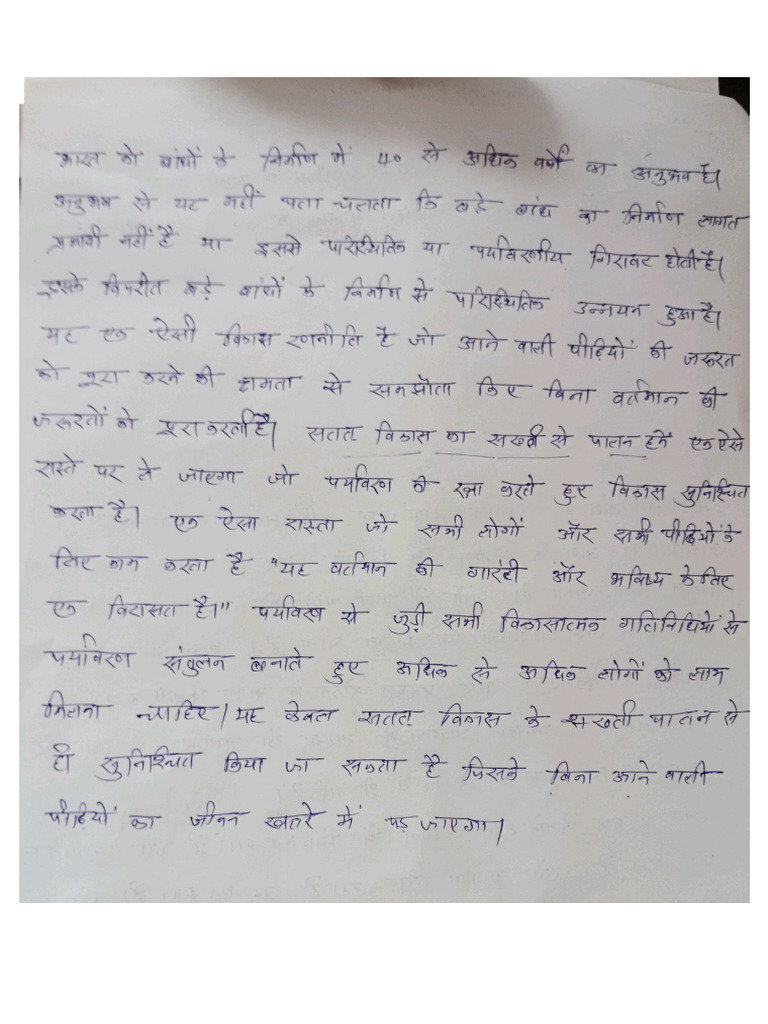 भारत को बांधों के निर्माण में 40 से अधिक वर्षों का अनुभव है।
अनुभव से यह नहीं पता चलता कि बड़े बांध का निर्माण लागत
प्रभावी नहीं है या इससे पारिस्थितिक या पर्यावरणीय गिरावट होती है।
इसके विपरीत बड़े बांधों के निर्माण से पारिस्थितिक उन्नयन हुआ है।
यह एक ऐसी विकास रणनीति है जो आने वाली पीढ़ियों की जरूरत
को पूरा करने की क्षमता से समझौता किए बिना वर्तमान की
जरूरतों को पूरा करती है। सतत विकास का सख्ती से पालन हमें एक ऐसे
रास्ते पर ले जाएगा जो पर्यावरण की रक्षा करते हुए विकास सुनिश्चित
करता है। एक ऐसा रास्ता जो सभी लोगों और सभी पीढ़ियों के
लिए काम करता है "यह वर्तमान की गारंटी और भविष्य के लिए
एक विरासत है।" पर्यावरण से जुड़ी सभी विकासात्मक गतिविधियों से
पर्यावरण संतुलन बनाते हुए अधिक से अधिक लोगों को लाभ
मिलना चाहिए। यह केवल सतत विकास के सख्ती पालन से
ही सुनिश्चित किया जा सकता है जिसके बिना आने वाली
पीढ़ियों का जीवन खतरे में पड़ जाएगा।